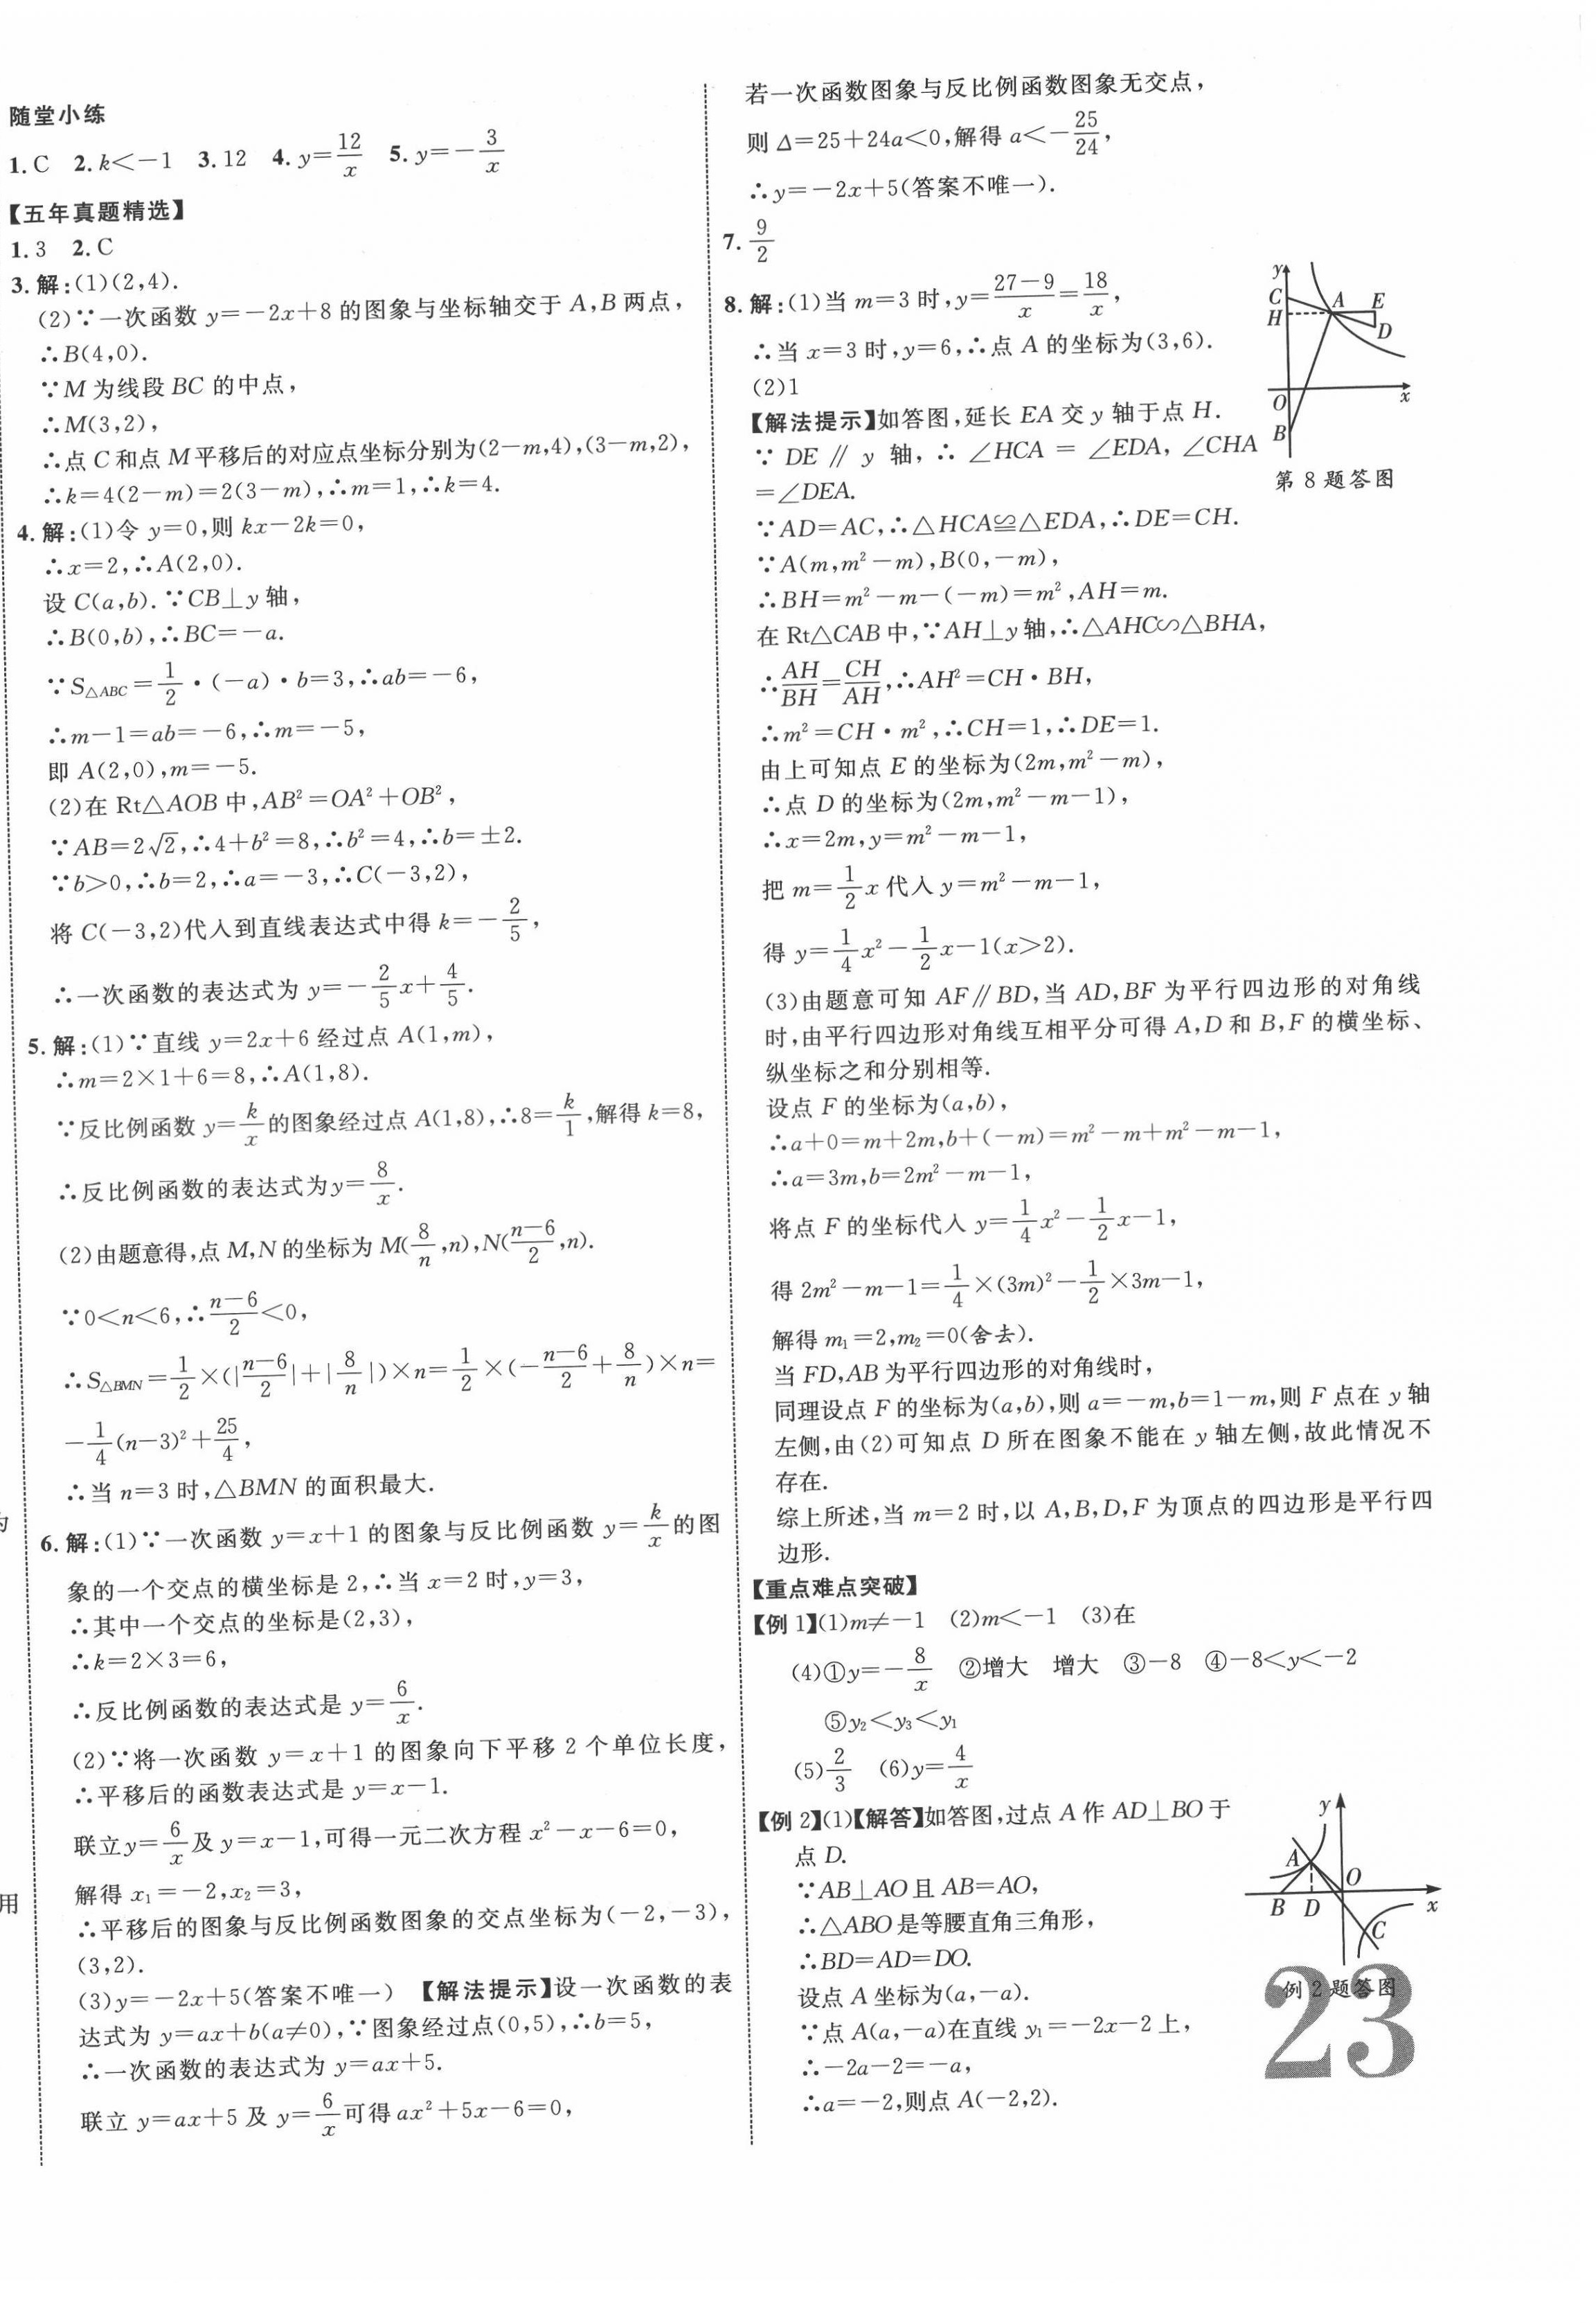 随堂小练
1. C  2. k<-1  3. 12  4. y=12/x  5. y=-3/x
【五年真题精选】
1. 3  2. C
3. 解:(1)(2,4).
(2)∵一次函数 y=-2x+8 的图象与坐标轴交于 A,B 两点,
∴B(4,0).
∵M 为线段 BC 的中点,
∴M(3,2),
∴点 C 和点 M 平移后的对应点坐标分别为(2-m,4),(3-m,2),
∴k=4(2-m)=2(3-m),∴m=1,∴k=4.
4. 解:(1)令 y=0,则 kx-2k=0,
∴x=2,∴A(2,0).
设 C(a,b). ∵CB⊥y 轴,
∴B(0,b),∴BC=-a.
∵S△ABC=1/2·(-a)·b=3,∴ab=-6,
∴m-1=ab=-6,∴m=-5,
即 A(2,0),m=-5.
(2)在 Rt△AOB 中,AB²=OA²+OB²,
∵AB=2√2,∴4+b²=8,∴b²=4,∴b=±2.
∵b>0,∴b=2,∴a=-3,∴C(-3,2),
将 C(-3,2)代入到直线表达式中得 k=-2/5,
∴一次函数的表达式为 y=-2/5x+4/5.
5. 解:(1)∵直线 y=2x+6 经过点 A(1,m),
∴m=2×1+6=8,∴A(1,8).
∵反比例函数 y=k/x的图象经过点 A(1,8),∴8=k/1,解得 k=8,
∴反比例函数的表达式为y=8/x.
(2)由题意得,点 M,N 的坐标为 M(8/n,n),N((n-6)/2,n).
∵0<n<6,∴(n-6)/2<0,
∴S△BMN=1/2×(|(n-6)/2|+|8/n|)×n=1/2×(-(n-6)/2+8/n)×n=
-1/4(n-3)²+25/4,
∴当 n=3 时,△BMN 的面积最大.
为
6. 解:(1)∵一次函数 y=x+1 的图象与反比例函数 y=k/x的图
象的一个交点的横坐标是 2,∴当 x=2 时,y=3,
∴其中一个交点的坐标是(2,3),
∴k=2×3=6,
∴反比例函数的表达式是 y=6/x.
(2)∵将一次函数 y=x+1 的图象向下平移 2 个单位长度,
∴平移后的函数表达式是 y=x-1.
联立y=6/x及 y=x-1,可得一元二次方程 x²-x-6=0,
解得 x₁=-2,x₂=3,
用
∴平移后的图象与反比例函数图象的交点坐标为(-2,-3),
(3,2).
(3)y=-2x+5(答案不唯一) 【解法提示】设一次函数的表
达式为 y=ax+b(a≠0),∵图象经过点(0,5),∴b=5,
∴一次函数的表达式为 y=ax+5.
联立 y=ax+5 及 y=6/x可得 ax²+5x-6=0,
若一次函数图象与反比例函数图象无交点,
则 Δ=25+24a<0,解得 a<-25/24,
∴y=-2x+5(答案不唯一).
7. 9/2
8. 解:(1)当 m=3 时,y=(27-9)/x=18/x,
∴当 x=3 时,y=6,∴点 A 的坐标为(3,6).
(2)1
【解法提示】如答图,延长 EA 交 y 轴于点 H.
∵ DE ∥ y 轴, ∴ ∠HCA = ∠EDA, ∠CHA
=∠DEA.
∵AD=AC,∴△HCA≌△EDA,∴DE=CH.
∵A(m,m²-m),B(0,-m),
∴BH=m²-m-(-m)=m²,AH=m.
在 Rt△CAB 中,∵AH⊥y 轴,∴△AHC∽△BHA,
∴AH/BH=CH/AH,∴AH²=CH·BH,
∴m²=CH·m²,∴CH=1,∴DE=1.
由上可知点 E 的坐标为(2m,m²-m),
∴点 D 的坐标为(2m,m²-m-1),
∴x=2m,y=m²-m-1,
把 m=1/2x 代入 y=m²-m-1,
得 y=1/4x²-1/2x-1(x>2).
(3)由题意可知 AF∥BD,当 AD,BF 为平行四边形的对角线
时,由平行四边形对角线互相平分可得 A,D 和 B,F 的横坐标、
纵坐标之和分别相等.
设点 F 的坐标为(a,b),
∴a+0=m+2m,b+(-m)=m²-m+m²-m-1,
∴a=3m,b=2m²-m-1,
将点 F 的坐标代入 y=1/4x²-1/2x-1,
得 2m²-m-1=1/4×(3m)²-1/2×3m-1,
解得 m₁=2,m₂=0(舍去).
当 FD,AB 为平行四边形的对角线时,
同理设点 F 的坐标为(a,b),则 a=-m,b=1-m,则 F 点在 y 轴
左侧,由(2)可知点 D 所在图象不能在 y 轴左侧,故此情况不
存在.
综上所述,当 m=2 时,以 A,B,D,F 为顶点的四边形是平行四
边形.
y
C
A
E
H
D
O
x
B
第 8 题答图
【重点难点突破】
【例 1】(1)m≠-1  (2)m<-1  (3)在
(4)①y=-8/x  ②增大  增大  ③-8  ④-8<y<-2
⑤y₂<y₃<y₁
(5)2/3  (6)y=4/x
【例 2】(1)【解答】如答图,过点 A 作 AD⊥BO 于
点 D.
∵AB⊥AO 且 AB=AO,
∴△ABO 是等腰直角三角形,
∴BD=AD=DO.
设点 A 坐标为(a,-a).
∵点 A(a,-a)在直线 y₁=-2x-2 上,
∴-2a-2=-a,
∴a=-2,则点 A(-2,2).
y
A
O
B
D
x
C
例 2 题答图
23